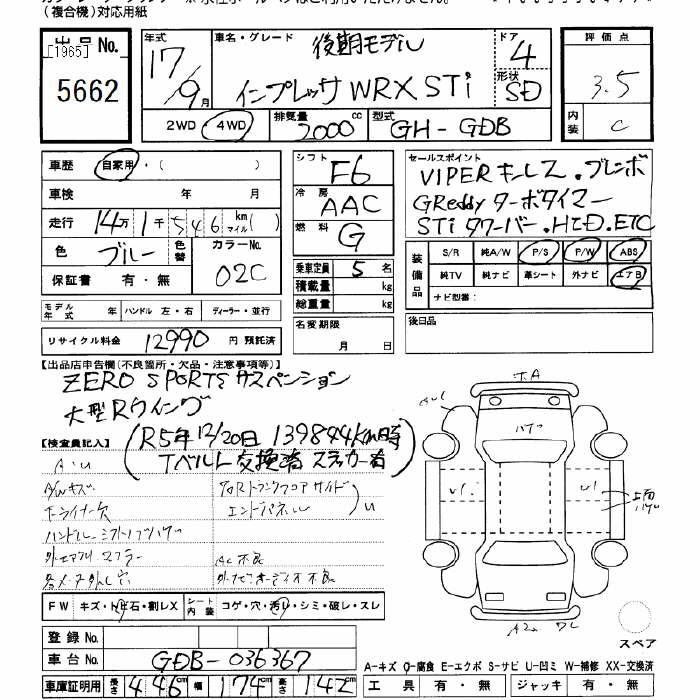 (複合機)対応用紙
出品No. [1965] 5662
年式 17/9月
車名・グレード 後期モデル インプレッサ WRX STi
ドア 4
形状 SD
評価点 3.5
内装 C
2WD・4WD
排気量 2000cc
型式 GH-GDB
車歴 自家用・( )
車検 年 月
走行 14万1千546km マイル( )
色 ブルー 色替 カラーNo. 02C
保証書 有・無
シフト F6
冷房 AAC
燃料 G
乗車定員 5名
積載量 kg
総重量 kg
セールスポイント
VIPERキーレス.ブレンボ
GReddy ターボタイマー
STiタワーバー.HID.ETC
装備品 S/R 純A/W P/S P/W ABS
純TV 純ナビ 革シート 外ナビ エアB
ナビ型番:
モデル年式 年 ハンドル 左・右 ディーラー・並行
リサイクル料金 12990円 預託済
名変期限 月 日
後日品
【出品店申告欄(不良箇所・欠品・注意事項等)】
ZERO SPORTSサスペンション
大型Rウイング
(R5年12/20日 139844Km時
Tベルト交換済 ステッカー有)
【検査員記入】
A・U
A/Wキズ
外マフラー
AC不良
エンドパネル
U
FW キズ・飛石・割レX シート内装 コゲ・穴・汚レ・シミ・破レ・スレ
登録No.
車台No. GDB-036367
車庫証明用 長さ 446cm 幅 174cm 高さ 142cm
スペア
A-キズ C-腐食 E-エクボ S-サビ U-凹ミ W-補修 XX-交換済
工具 有・無 ジャッキ 有・無